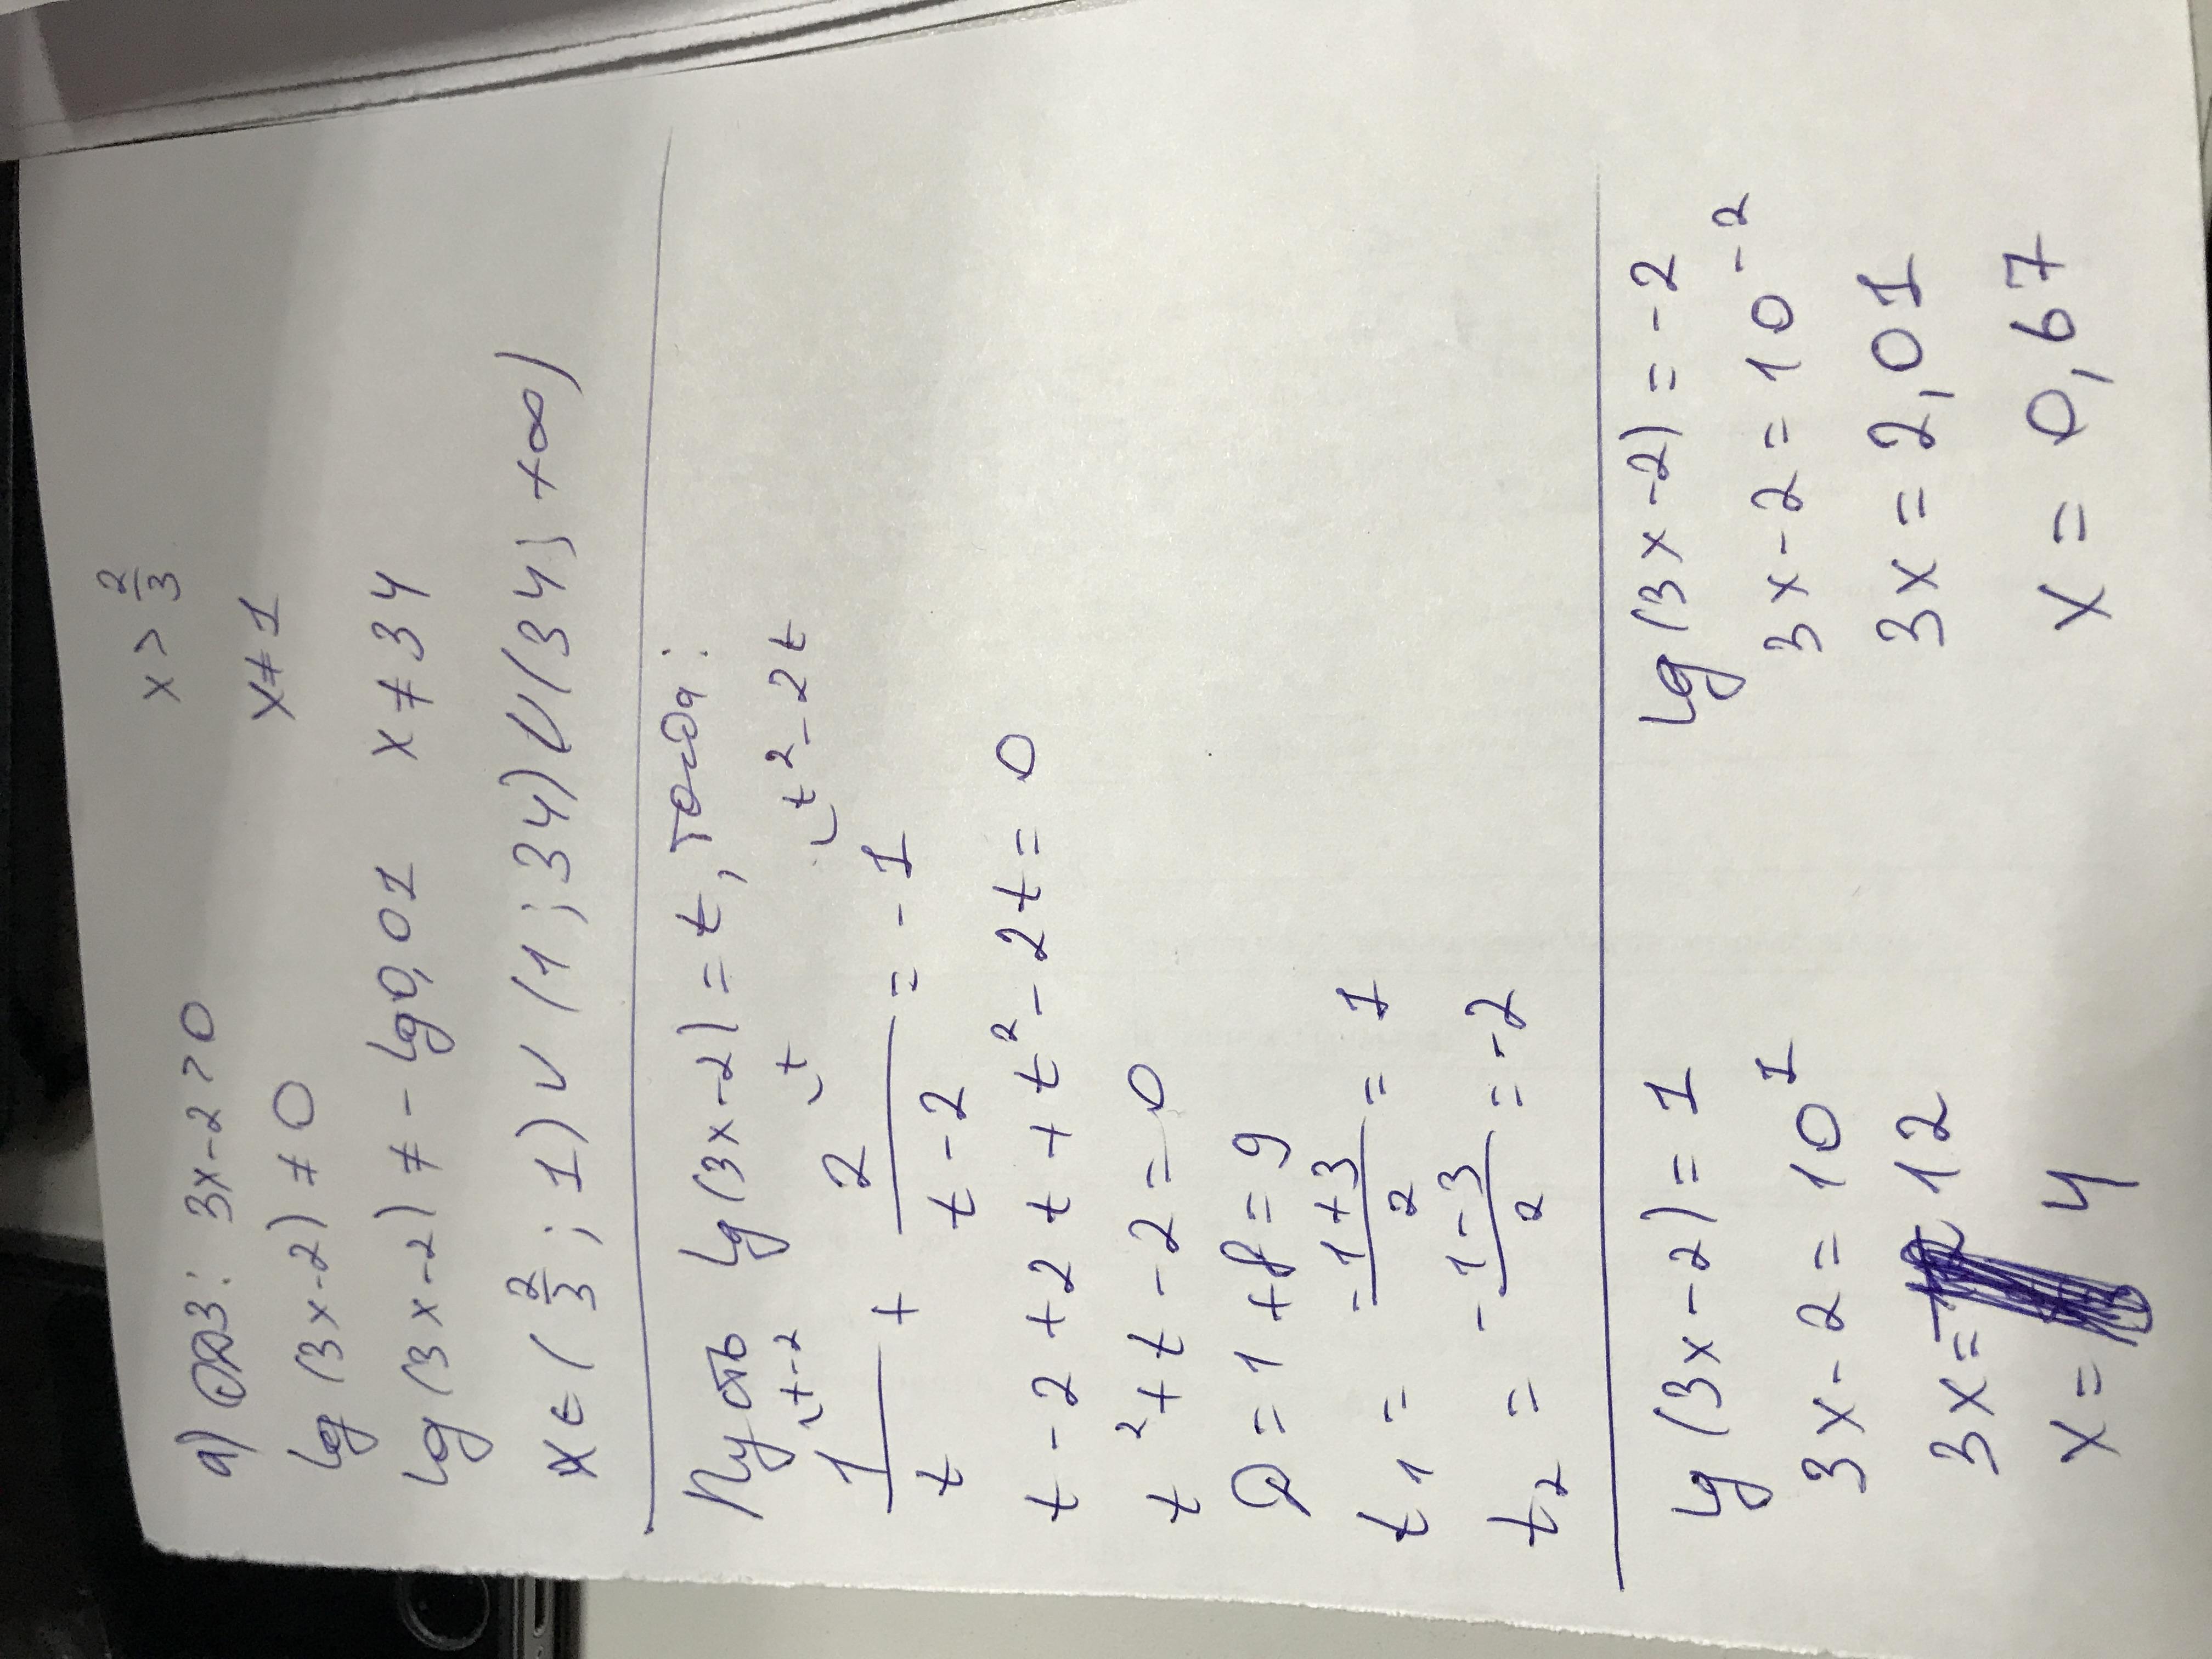 а) ОДЗ: 3x-2>0 x>2/3
lg(3x-2)≠0 x≠1
lg(3x-2)≠-lg0,01 x≠34
x∈(2/3;1)∪(1;34)∪(34;+∞)
Пусть lg(3x-2)=t, тогда:
t-2 t t²-2t
1/t + 2/(t-2) = -1
t-2+2t+t²-2t=0
t²+t-2=0
D=1+8=9
t₁=(-1+3)/2=1
t₂=(-1-3)/2=-2
lg(3x-2)=1 lg(3x-2)=-2
3x-2=10¹ 3x-2=10⁻²
3x=12 3x=2,01
x=4 x=0,67